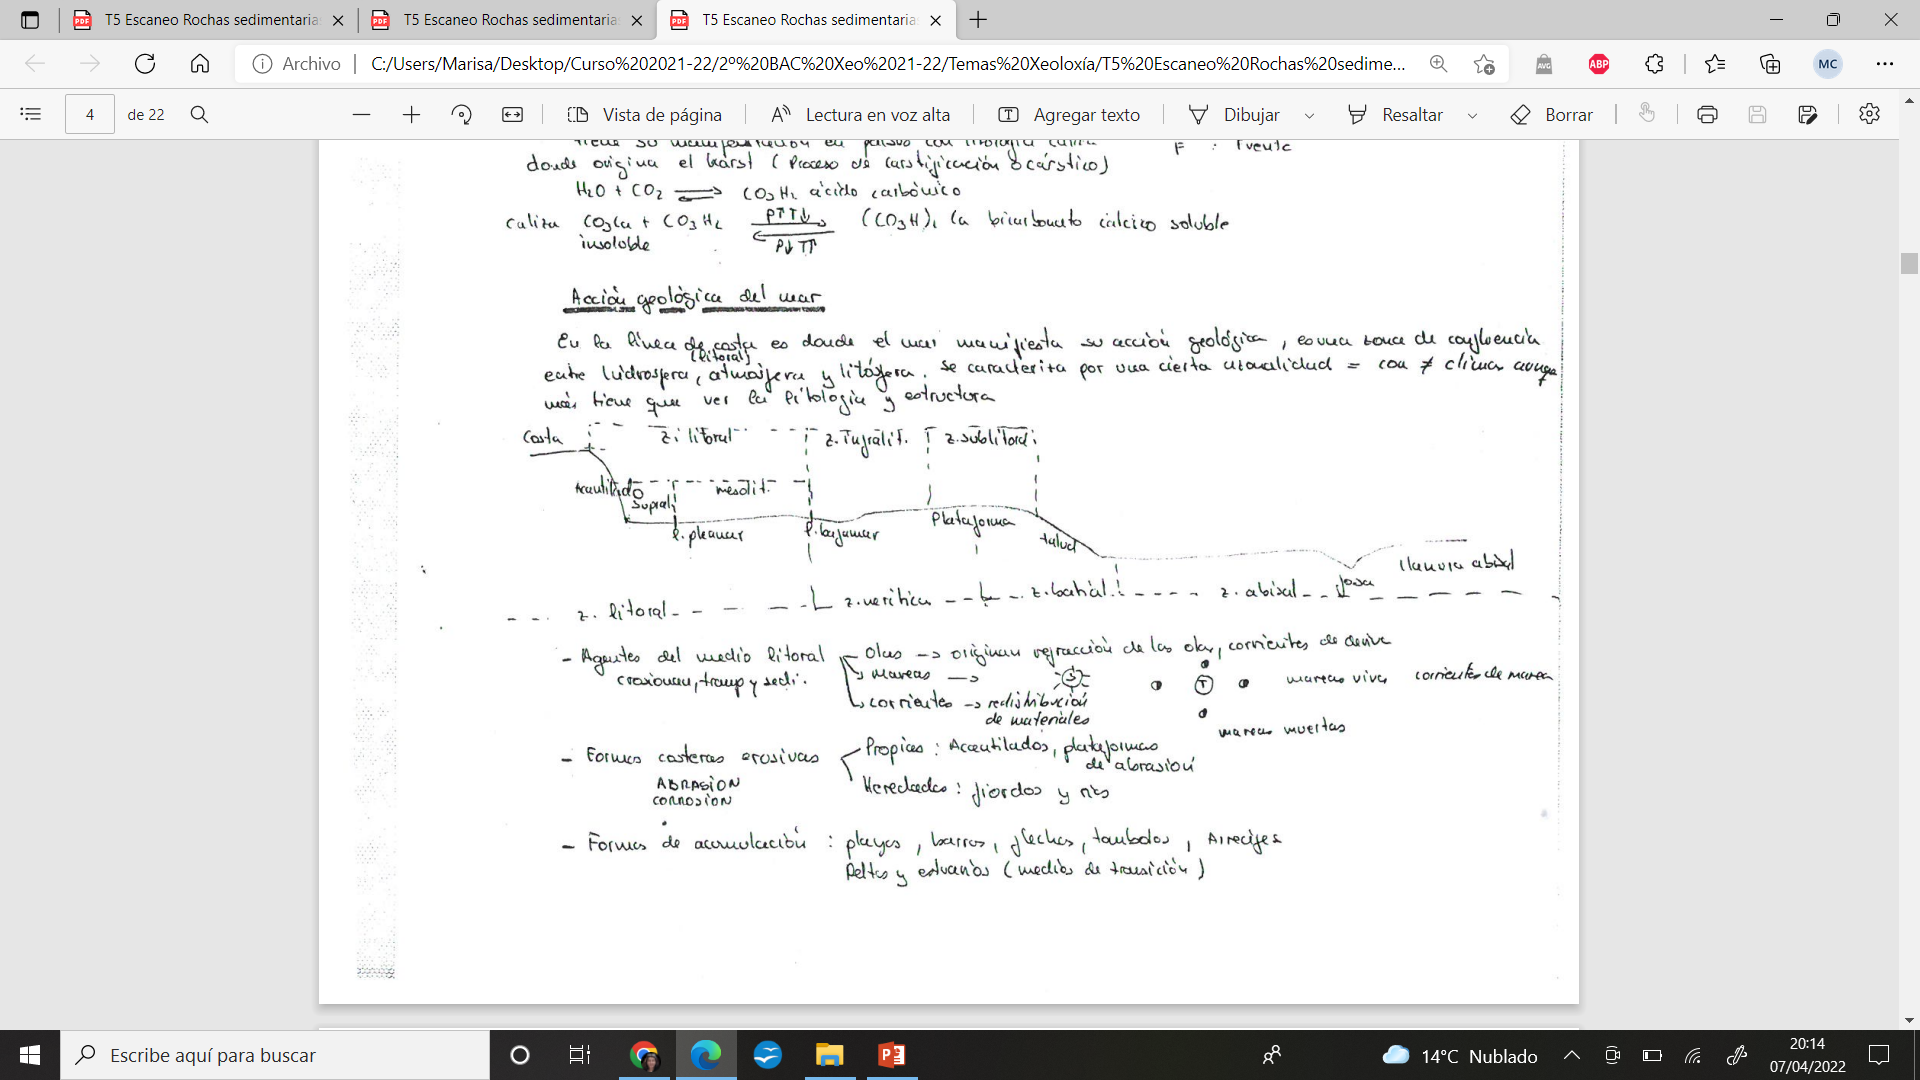 T5 Escaneo Rochas sedimentaria
T5 Escaneo Rochas sedimentaria
T5 Escaneo Rochas sedimentaria
Archivo
C:/Users/Marisa/Desktop/Curso%202021-22/2º%20BAC%20Xeo%2021-22/Temas%20Xeoloxía/T5%20Escaneo%20Rochas%20sedime...
AVG
ABP
MC
4 de 22
Vista de página
Lectura en voz alta
Agregar texto
Dibujar
Resaltar
Borrar
F : Fuente
donde origina el karst (Proceso de carstificación o cárstico)
H2O + CO2 ⇌ CO3H2 ácido carbónico
caliza CO3Ca + CO3H2 P↑T↓ (CO3H)2 Ca bicarbonato cálcico soluble
insoluble P↓ T↑
Acción geológica del mar
En la línea de costa es donde el mar manifiesta su acción geológica, es una zona de confluencia
(litoral)
entre hidrosfera, atmósfera y litósfera. Se caracteriza por una cierta azonalidad = con ≠ climas aunque
más tiene que ver la litología y estructura
Costa z. litoral z. infralit. z. sublitoral
Acantilado supral. mesolit.
l. pleamar l. bajamar Plataforma talud
llanura abisal
fosa
z. litoral z. nerítica z. batial z. abisal
- Agentes del medio litoral Olas → originan refracción de las olas, corrientes de deriva
erosionan, transp y sedi. mareas → S T mareas vivas corrientes de marea
corrientes → redistribución
de materiales
mareas muertas
- Formas costeras erosivas Propias : Acantilados, plataformas
de abrasión
ABRASION
CORROSION
Heredadas : fiordos y rías
- Formas de acumulación : playas, barras, flechas, tombolos, Arrecifes
Deltas y estuarios (medios de transición)
Escribe aquí para buscar
14°C Nublado
20:14
07/04/2022